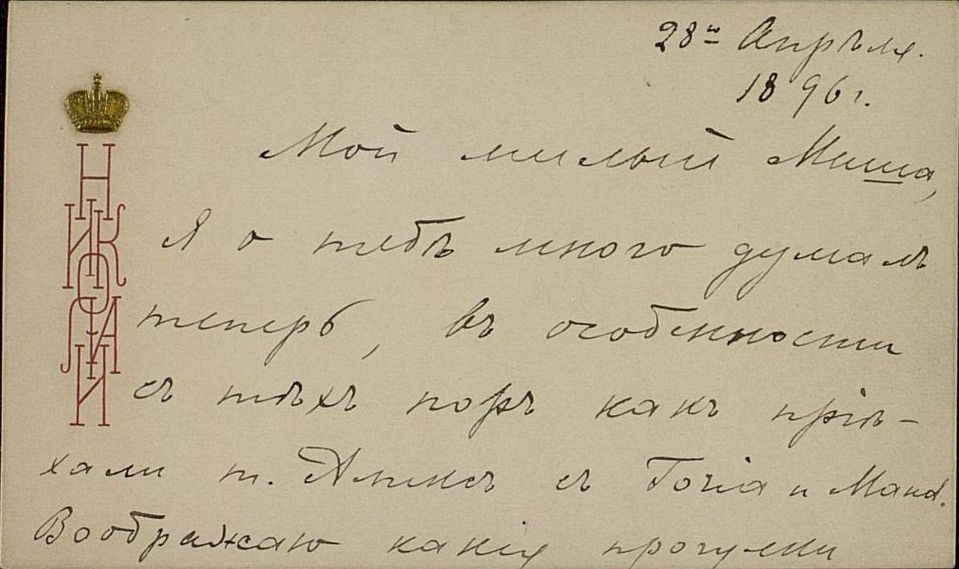 28го Апрѣля.
1896 г.
НИКОЛАЙ
Мой милый Миша,
Я о тебѣ много думалъ
теперь, въ особенности
съ тѣхъ поръ какъ прiѣ-
хали т. Аликсъ съ
Воображаю какiя прогулки